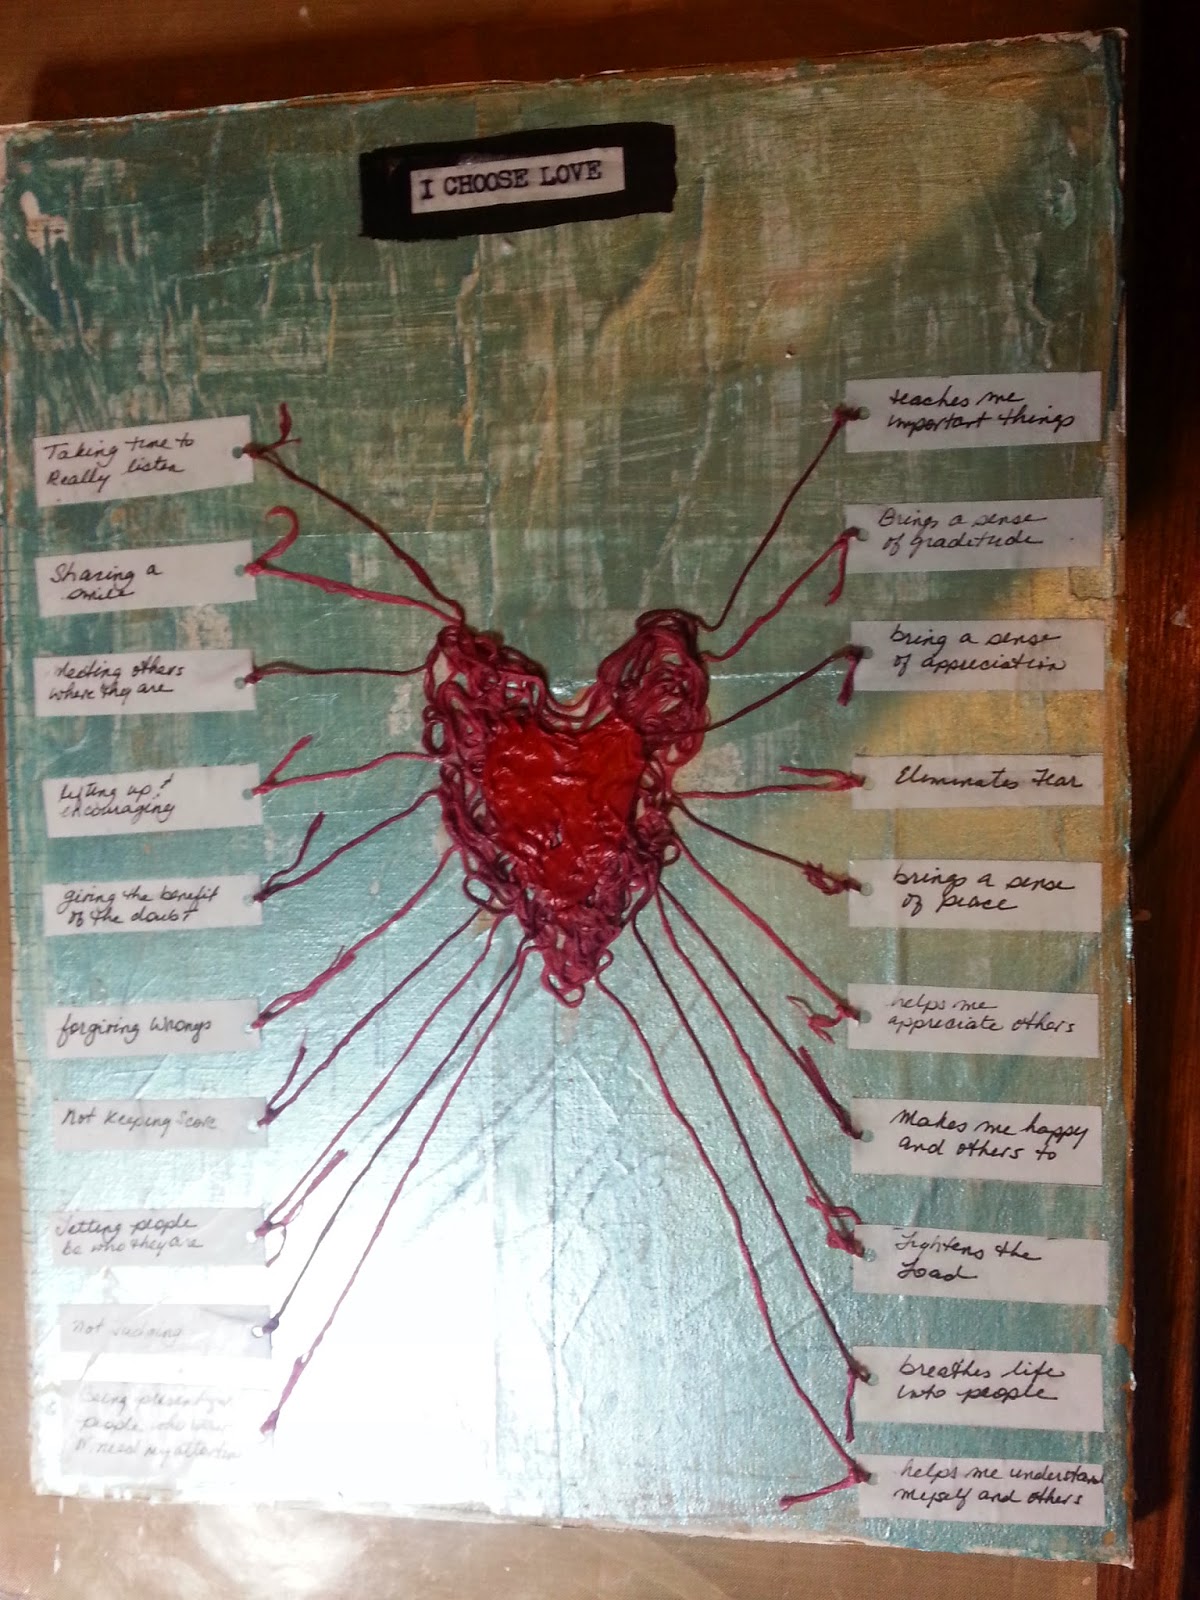 I CHOOSE LOVE
Taking time to
Really listen
Sharing a
smile
Meeting others
where they are
Lifting up &
encouraging
giving the benefit
of the doubt
forgiving wrongs
Not Keeping Score
Letting people
be who they are
Not Judging
Being present for
people who
need my attention
teaches me
important things
Brings a sense
of graditude
bring a sense
of appreciation
Eliminates Fear
brings a sense
of peace
helps me
appreciate others
Makes me happy
and others to
Lightens the
Load
breathes life
into people
helps me understand
myself and others